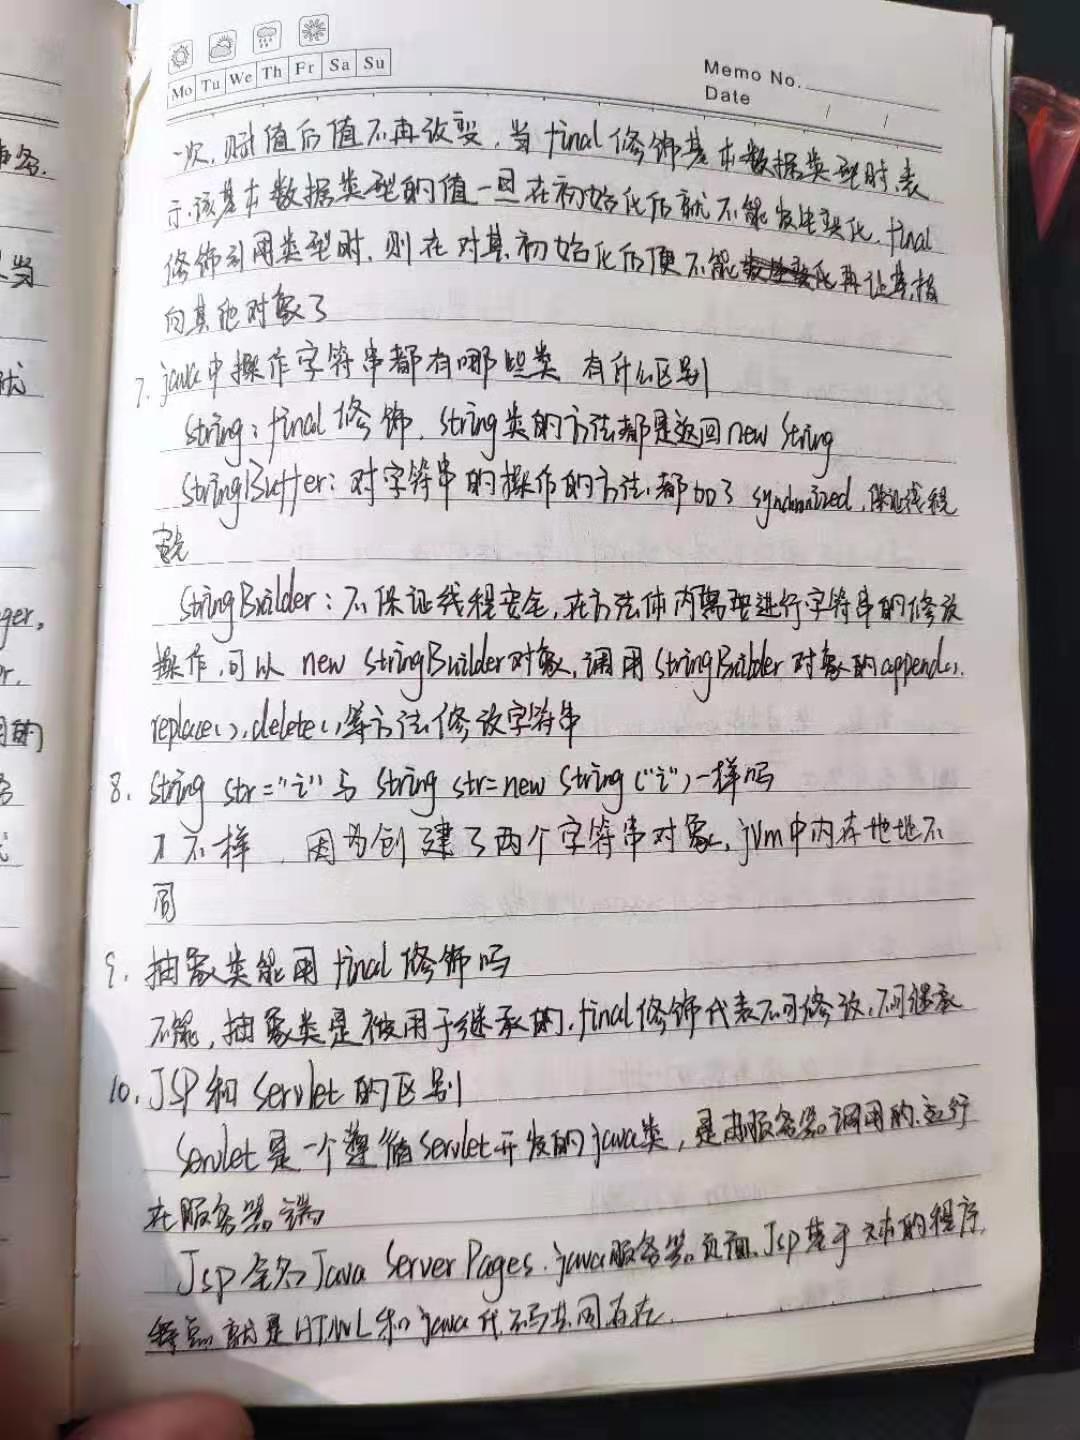 Mo Tu We Th Fr Sa Su
Memo No.
Date
一次,赋值后值不再改变,当final修饰基本数据类型时,表
示该基本数据类型的值一旦在初始化后就不能发生变化.final
修饰引用类型时,则在对其初始化后便不能再让其指
向其他对象了
7. java中操作字符串都有哪些类 有什么区别
String:final修饰,String类的方法都是返回new String
StringBuffer:对字符串的操作的方法都加了synchronized,保证线程
安全
StringBuilder:不保证线程安全,在方法体内需要进行字符串的修改
操作,可以new StringBuilder对象,调用StringBuilder对象的append(),
replace(),delete()等方法修改字符串
8. String str="i"与String str=new String("i")一样吗
不一样,因为创建了两个字符串对象,jvm中内存地址不
同
9. 抽象类能用final修饰吗
不能,抽象类是被用于继承的,final修饰代表不可修改,不可继承
10. JSP和Servlet的区别
Servlet是一个遵循Servlet开发的java类,是由服务器调用的,运行
在服务器端
Jsp全名Java Server Pages.java服务器页面,Jsp基于文本的程序,
特点就是HTML和java代码共同存在.
器.
ger,
r,
用的